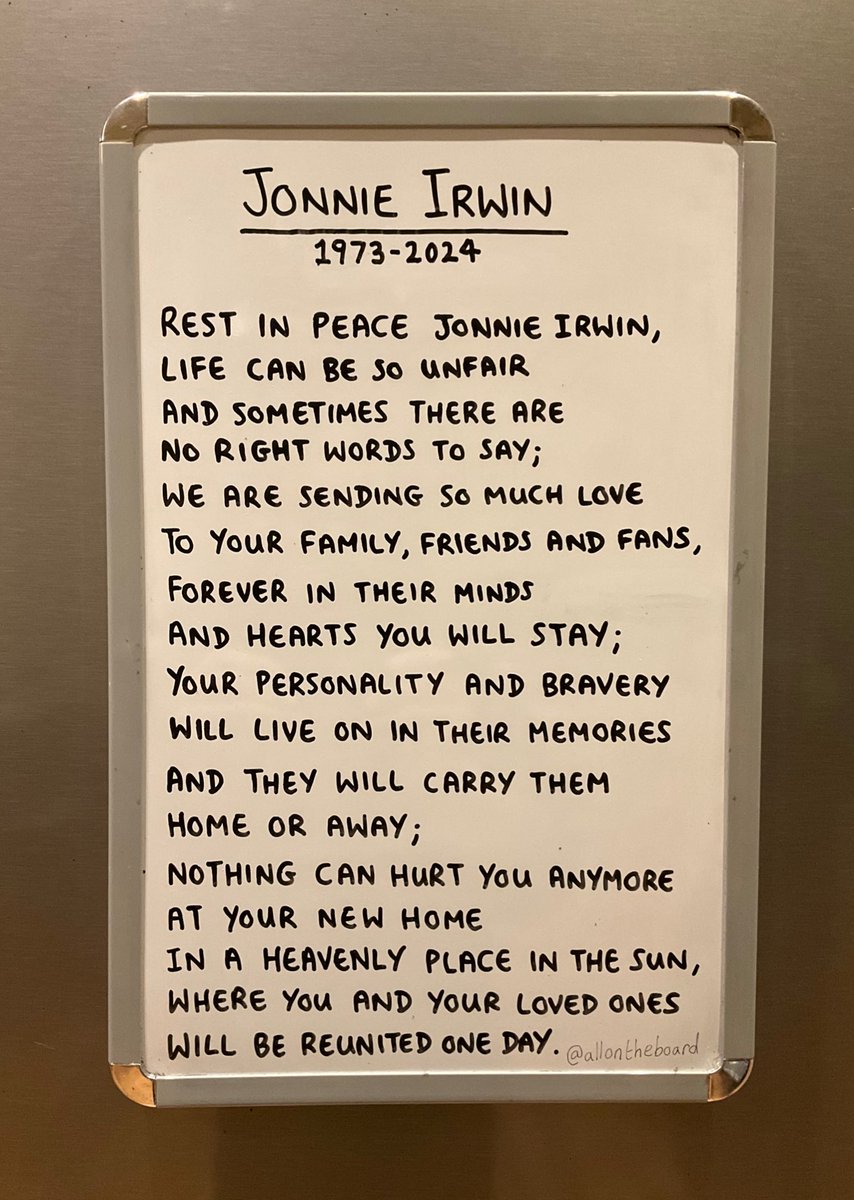 JONNIE IRWIN
1973-2024
REST IN PEACE JONNIE IRWIN,
LIFE CAN BE SO UNFAIR
AND SOMETIMES THERE ARE
NO RIGHT WORDS TO SAY;
WE ARE SENDING SO MUCH LOVE
TO YOUR FAMILY, FRIENDS AND FANS,
FOREVER IN THEIR MINDS
AND HEARTS YOU WILL STAY;
YOUR PERSONALITY AND BRAVERY
WILL LIVE ON IN THEIR MEMORIES
AND THEY WILL CARRY THEM
HOME OR AWAY;
NOTHING CAN HURT YOU ANYMORE
AT YOUR NEW HOME
IN A HEAVENLY PLACE IN THE SUN,
WHERE YOU AND YOUR LOVED ONES
WILL BE REUNITED ONE DAY. @allontheboard